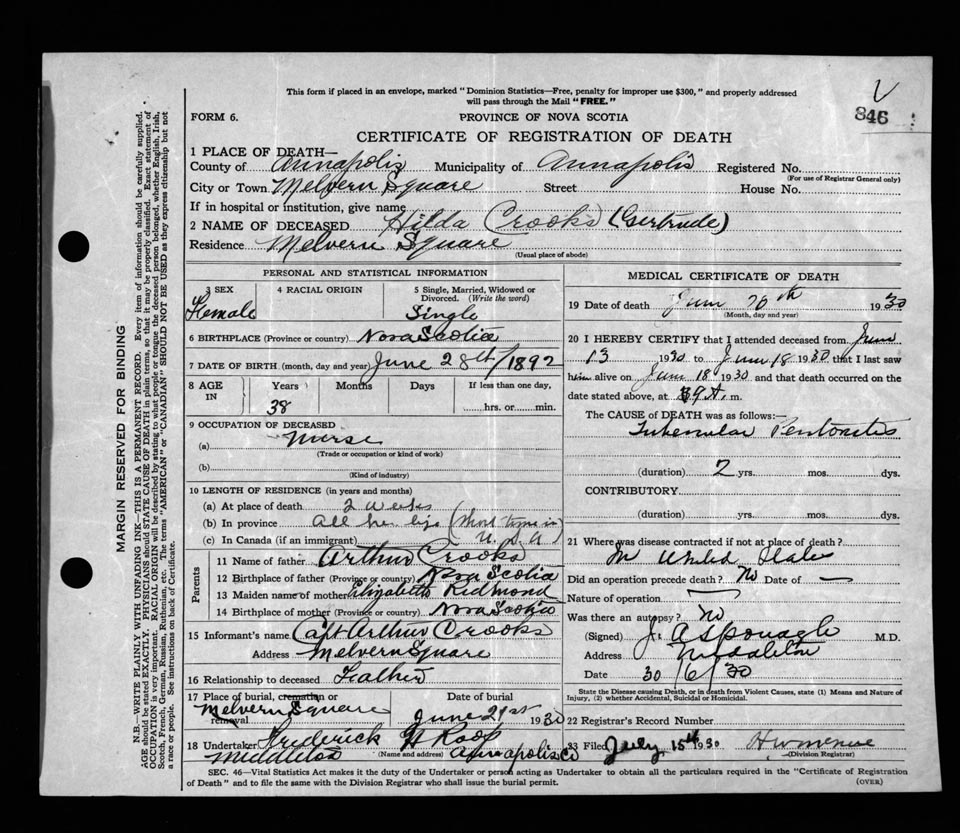 This form if placed in an envelope, marked "Dominion Statistics—Free, penalty for improper use $300," and properly addressed
will pass through the Mail "FREE."
846
FORM 6.
PROVINCE OF NOVA SCOTIA
CERTIFICATE OF REGISTRATION OF DEATH
1 PLACE OF DEATH—
County of Annapolis Municipality of Annapolis Registered No.
(For use of Registrar General only)
City or Town Melvern Square Street House No.
If in hospital or institution, give name
2 NAME OF DECEASED Hilda Crooks (Gertrude)
Residence Melvern Square
(Usual place of abode)
PERSONAL AND STATISTICAL INFORMATION
3 SEX 4 RACIAL ORIGIN 5 Single, Married, Widowed or
Divorced. (Write the word)
Female Single
6 BIRTHPLACE (Province or country) Nova Scotia
7 DATE OF BIRTH (month, day and year) June 28th/1892
8 AGE IN Years Months Days If less than one day,
38 hrs. or min.
9 OCCUPATION OF DECEASED
(a) Nurse
(Trade or occupation or kind of work)
(b)
(Kind of industry)
10 LENGTH OF RESIDENCE (in years and months)
(a) At place of death 2 weeks
(b) In province all her life (Short time in
(c) In Canada (if an immigrant) U.S.A)
Parents
11 Name of father Arthur Crooks
12 Birthplace of father (Province or country) Nova Scotia
13 Maiden name of mother Elizabeth Redmond
14 Birthplace of mother (Province or country) Nova Scotia
15 Informant's name Capt Arthur Crooks
Address Melvern Square
16 Relationship to deceased Father
17 Place of burial, cremation or removal Date of burial
Melvern Square June 21st 1930
18 Undertaker Frederick W Roop
(Name and address)
Middleton Annapolis Co
MEDICAL CERTIFICATE OF DEATH
19 Date of death June 20th 1930
(Month, day and year)
20 I HEREBY CERTIFY that I attended deceased from June
13 1930 to June 18 1930 that I last saw
him alive on June 18 1930 and that death occurred on the
date stated above, at m.
The CAUSE of DEATH was as follows:—
Tubercular Peritonitis
(duration) 2 yrs. mos. dys.
CONTRIBUTORY.
(duration) yrs. mos. dys.
21 Where was disease contracted if not at place of death?
In United States
Did an operation precede death? No Date of —
Nature of operation
Was there an autopsy? No
(Signed) J. A Sponagle M.D.
Address Middleton
Date 30/6/30
State the Disease causing Death, or in death from Violent Causes, state (1) Means and Nature of
Injury, (2) whether Accidental, Suicidal or Homicidal.
22 Registrar's Record Number
23 Filed July 15th 1930
(Division Registrar)
SEC. 46—Vital Statistics Act makes it the duty of the Undertaker or person acting as Undertaker to obtain all the particulars required in the "Certificate of Registration
of Death" and to file the same with the Division Registrar who shall issue the burial permit.
(OVER)
MARGIN RESERVED FOR BINDING
N.B.—WRITE PLAINLY WITH UNFADING INK—THIS IS A PERMANENT RECORD. Every item of information should be carefully supplied.
AGE should be stated EXACTLY. PHYSICIANS should STATE CAUSE OF DEATH in plain terms, so that it may be properly classified. Exact statement of
OCCUPATION is very important. RACIAL ORIGIN will be described by stating to what people or tongue the deceased person belonged, whether English, Irish,
Scotch, French, German, Russian, Ruthenian, etc. The terms "AMERICAN" or "CANADIAN" SHOULD NOT BE USED as they express citizenship but not
a race or people. See instructions on back of Certificate.